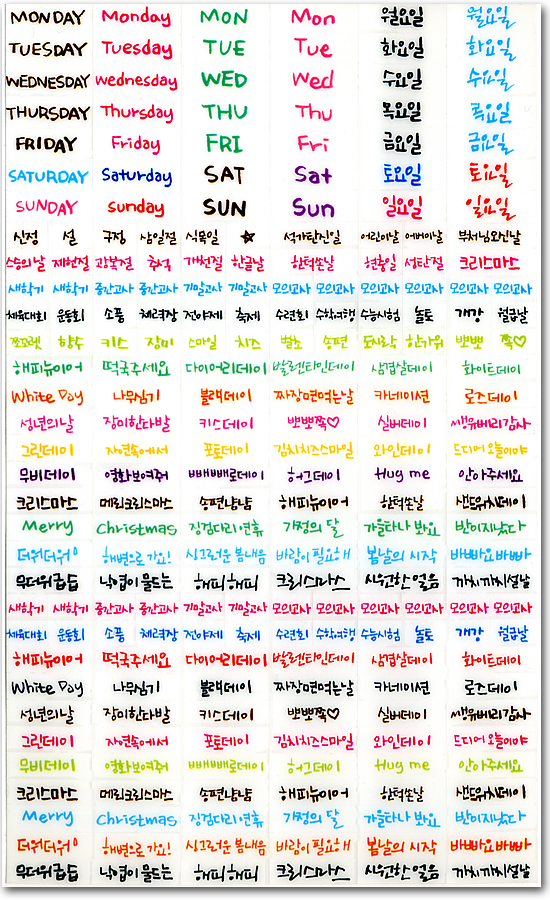 MONDAY Monday MON Mon 월요일 월요일
TUESDAY Tuesday TUE Tue 화요일 화요일
WEDNESDAY wednesday WED Wed 수요일 수요일
THURSDAY Thursday THU Thu 목요일 목요일
FRIDAY Friday FRI Fri 금요일 금요일
SATURDAY Saturday SAT Sat 토요일 토요일
SUNDAY sunday SUN Sun 일요일 일요일
신정 설 구정 삼일절 식목일 석가탄신일 어린이날 어버이날 부처님오신날
스승의날 제헌절 광복절 추석 개천절 한글날 한턱쏜날 현충일 성탄절 크리스마스
새학기 새학기 중간고사 중간고사 기말고사 기말고사 모의고사 모의고사 모의고사 모의고사 모의고사 모의고사
체육대회 운동회 소풍 체력장 전야제 축제 수련회 수학여행 수능시험 놀토 개강 월급날
쪼꼬렛 향수 키스 장미 스마일 치즈 벌초 송편 도시락 한가위 뽀뽀 쪽♡
해피뉴이어 떡국주세요 다이어리데이 발렌타인데이 삼겹살데이 화이트데이
White Day 나무심기 블랙데이 짜장면먹는날 카네이션 로즈데이
성년의날 장미한다발 키스데이 뽀뽀쪽♡ 실버데이 쌩유베리감사
그린데이 자연속에서 포토데이 김치치즈스마일 와인데이 드디어오늘이야
무비데이 영화보여주 빼빼빼로데이 허그데이 Hug me 안아주세요
크리스마스 메리크리스마스 송편냠냠 해피뉴이어 한턱쏜날 샌드위치데이
Merry Christmas 징검다리연휴 가정의 달 가을타나 봐요 밤이지났다
더워더워 해변으로 가요! 싱그러운 봄내음 바람이 필요해 봄날의 시작 바빠요바빠
무더위클클 낙엽이물드는 해피해피 크리스마스 시원한얼음 까치까치설날
새학기 새학기 중간고사 중간고사 기말고사 기말고사 모의고사 모의고사 모의고사 모의고사 모의고사 모의고사
체육대회 운동회 소풍 체력장 전야제 축제 수련회 수학여행 수능시험 놀토 개강 월급날
해피뉴이어 떡국주세요 다이어리데이 발렌타인데이 삼겹살데이 화이트데이
White Day 나무심기 블랙데이 짜장면먹는날 카네이션 로즈데이
성년의날 장미한다발 키스데이 뽀뽀쪽♡ 실버데이 쌩유베리감사
그린데이 자연속에서 포토데이 김치치즈스마일 와인데이 드디어오늘이야
무비데이 영화보여주 빼빼빼로데이 허그데이 Hug me 안아주세요
크리스마스 메리크리스마스 송편냠냠 해피뉴이어 한턱쏜날 샌드위치데이
Merry Christmas 징검다리연휴 가정의 달 가을타나 봐요
더워더워 해변으로 가요! 싱그러운 봄내음 바람이 필요해 봄날의 시작 바빠요바빠
낙엽이물드는 해피해피 크리스마스 시원한얼음 까치까치설날